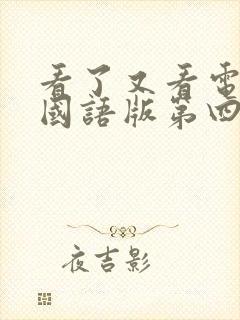 看了又看電
國語版第四
夜吉影